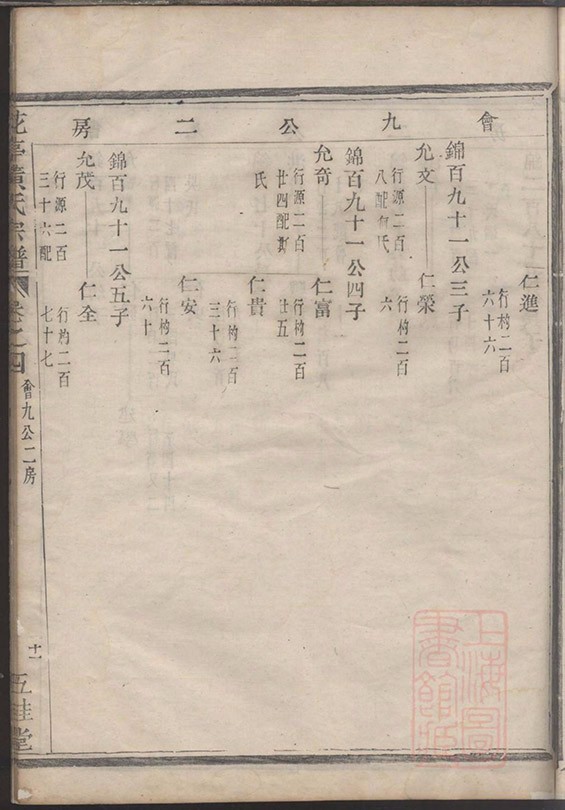 會九公二房
仁進
行杓二百
六十六
錦百九十一公三子
允文 仁榮
行源二百 行杓二百
八配何氏 六
錦百九十一公四子
允奇 仁富
行源二百 行杓二百
廿四配 廿五
氏 仁貴
行杓二百
三十六
仁安
行杓二百
六十
錦百九十一公五子
允茂 仁全
行源二百 行杓二百
三十六配 七十七
黃氏宗譜 卷之四 會九公二房 十一 五桂堂
上海圖書館藏